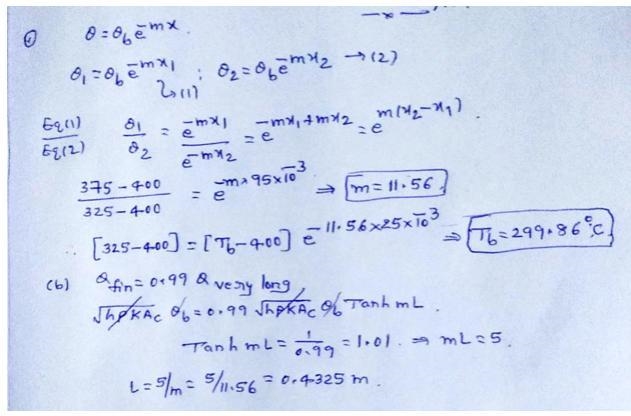 ① θ = θb e^-mx
θ1 = θb e^-mx1 ; θ2 = θb e^-mx2 → (2)
↳ (1)
Eq(1)/Eq(2) θ1/θ2 = e^-mx1/e^-mx2 = e^-mx1+mx2 = e^m(x2-x1).
375-400/325-400 = e^-m×95×10^-3 ⇒ m = 11.56
∴ [325-400] = [Tb-400] e^-11.56×25×10^-3 ⇒ Tb = 299.86°C
(b) Qfin = 0.99 Q very long
√hPKAc θb = 0.99 √hPKAc θb Tanh mL.
Tanh mL = 1/0.99 = 1.01. ⇒ mL = 5.
L = 5/m = 5/11.56 = 0.4325 m.